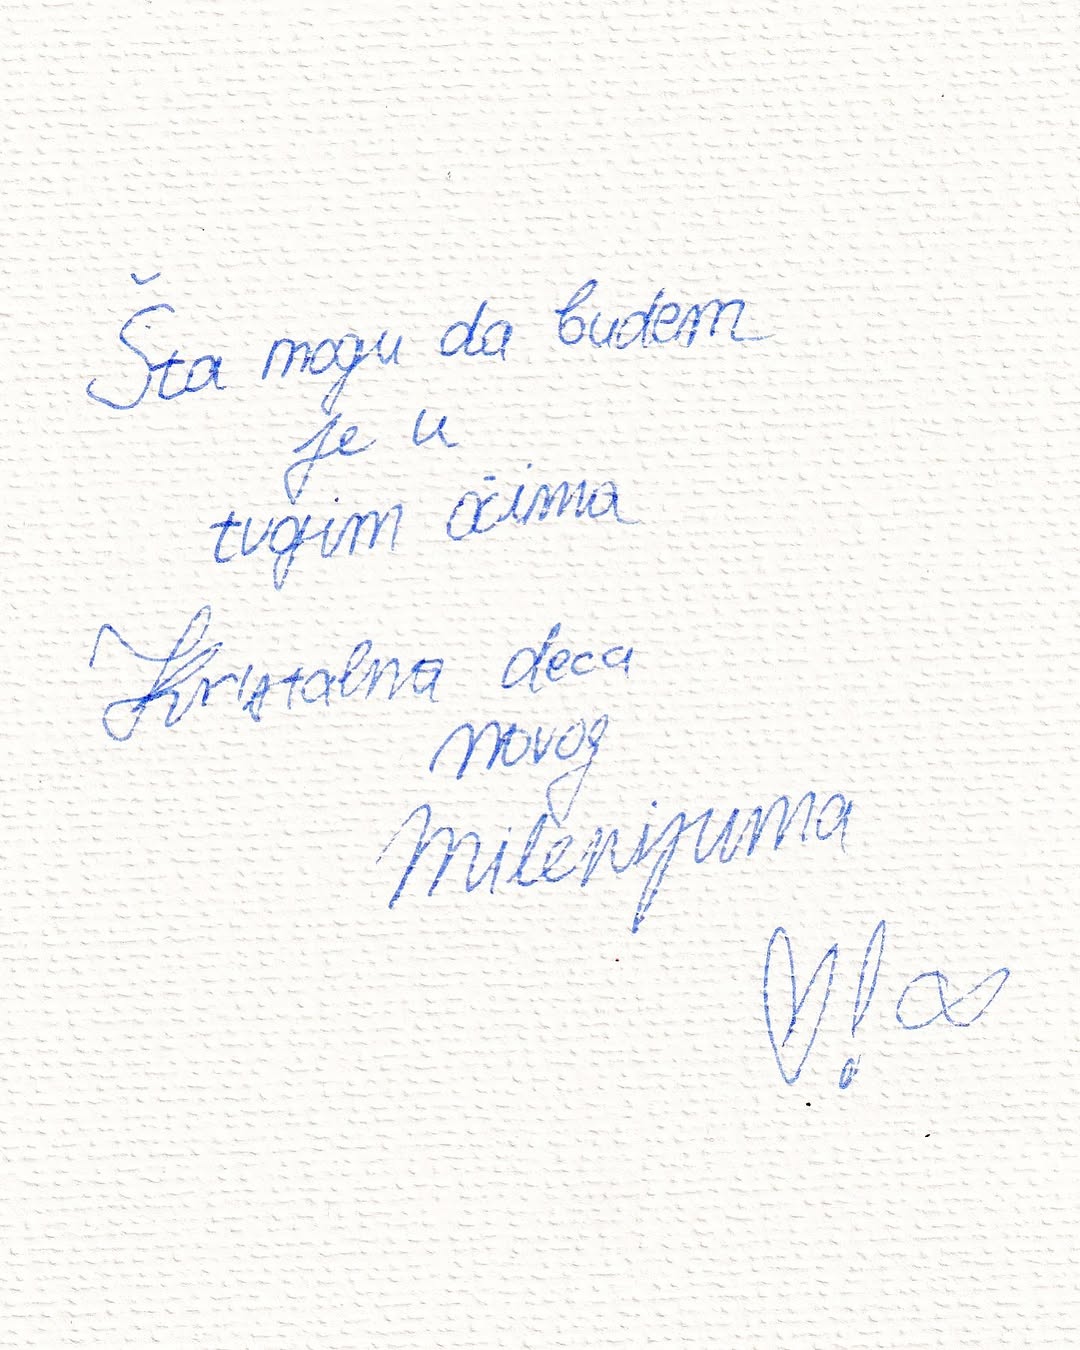 Šta mogu da budem
je u
tugim očima
Kristalna deca
novog
Milenijuma